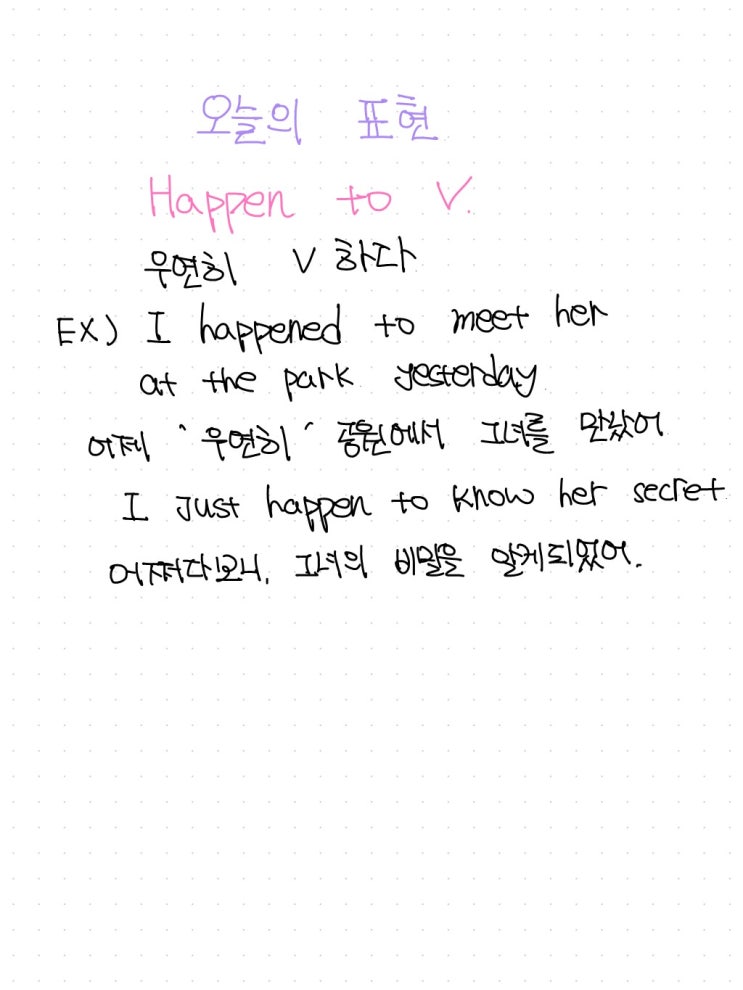 오늘의 표현
Happen to V.
우연히 V 하다
EX) I happened to meet her
at the park yesterday
어제 `우연히´ 공원에서 그녀를 만났어
I Just happen to know her secret
어쩌다보니, 그녀의 비밀을 알게되었어.